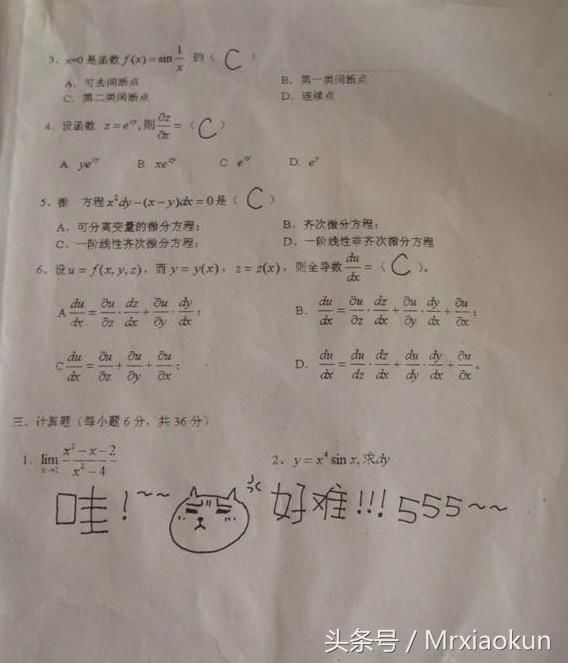 3、x=0 是函数 f(x)=sin 1/x 的（ C ）
A、可去间断点 B、第一类间断点
C、第二类间断点 D、连续点
4、设函数 z=e^{xy}, 则 ∂z/∂x =（ C ）
A. ye^{xy} B. xe^{xy} C. e^{xy} D. e^y
5、微 方程 x²dy−(x−y)dx=0 是（ C ）
A、可分离变量的微分方程； B、齐次微分方程；
C、一阶线性齐次微分方程； D、一阶线性非齐次微分方程
6、设 u=f(x,y,z)，而 y=y(x)，z=z(x)，则全导数 du/dx =（ C ）。
A du/dx = ∂u/∂z · dz/dx + ∂u/∂y · dy/dx； B. du/dx = ∂u/∂z · dz/dx + ∂u/∂y · dy/dx + ∂u/∂x；
C du/dx = ∂u/∂z + ∂u/∂y + ∂u/∂x； D. du/dx = du/dz · dz/dx + du/dy · dy/dx + ∂u/∂x。
三、计算题（每小题 6 分，共 36 分）
1、lim x→2 (x²−x−2)/(x²−4) 2、y=x⁴ sin x, 求dy
哇！~~ 好难!!! 555~~
头条号 / Mrxiaokun